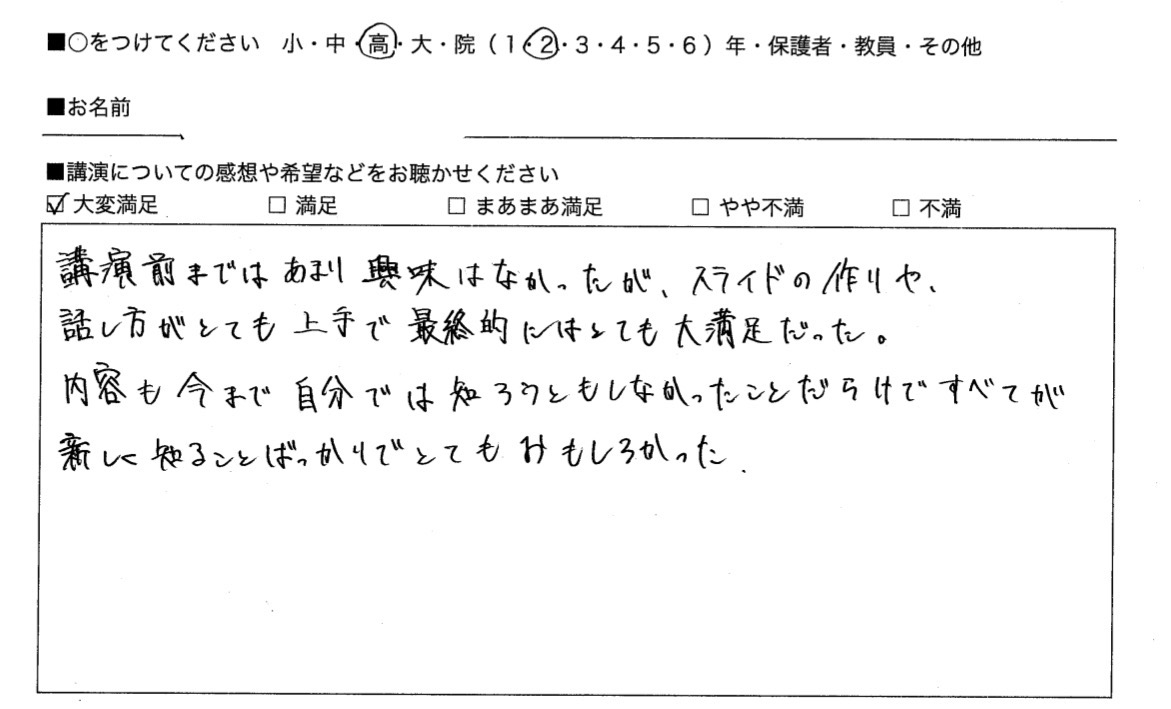 ■○をつけてください 小・中・高・大・院（1・2・3・4・5・6）年・保護者・教員・その他
■お名前
■講演についての感想や希望などをお聴かせください
☑ 大変満足 □ 満足 □ まあまあ満足 □ やや不満 □ 不満
講演前まではあまり興味はなかったが、スライドの作りや、
話し方がとても上手で最終的にはとても大満足だった。
内容も今まで自分では知ろうともしなかったことだらけですべてが
新しく知ることばっかりでとてもおもしろかった.